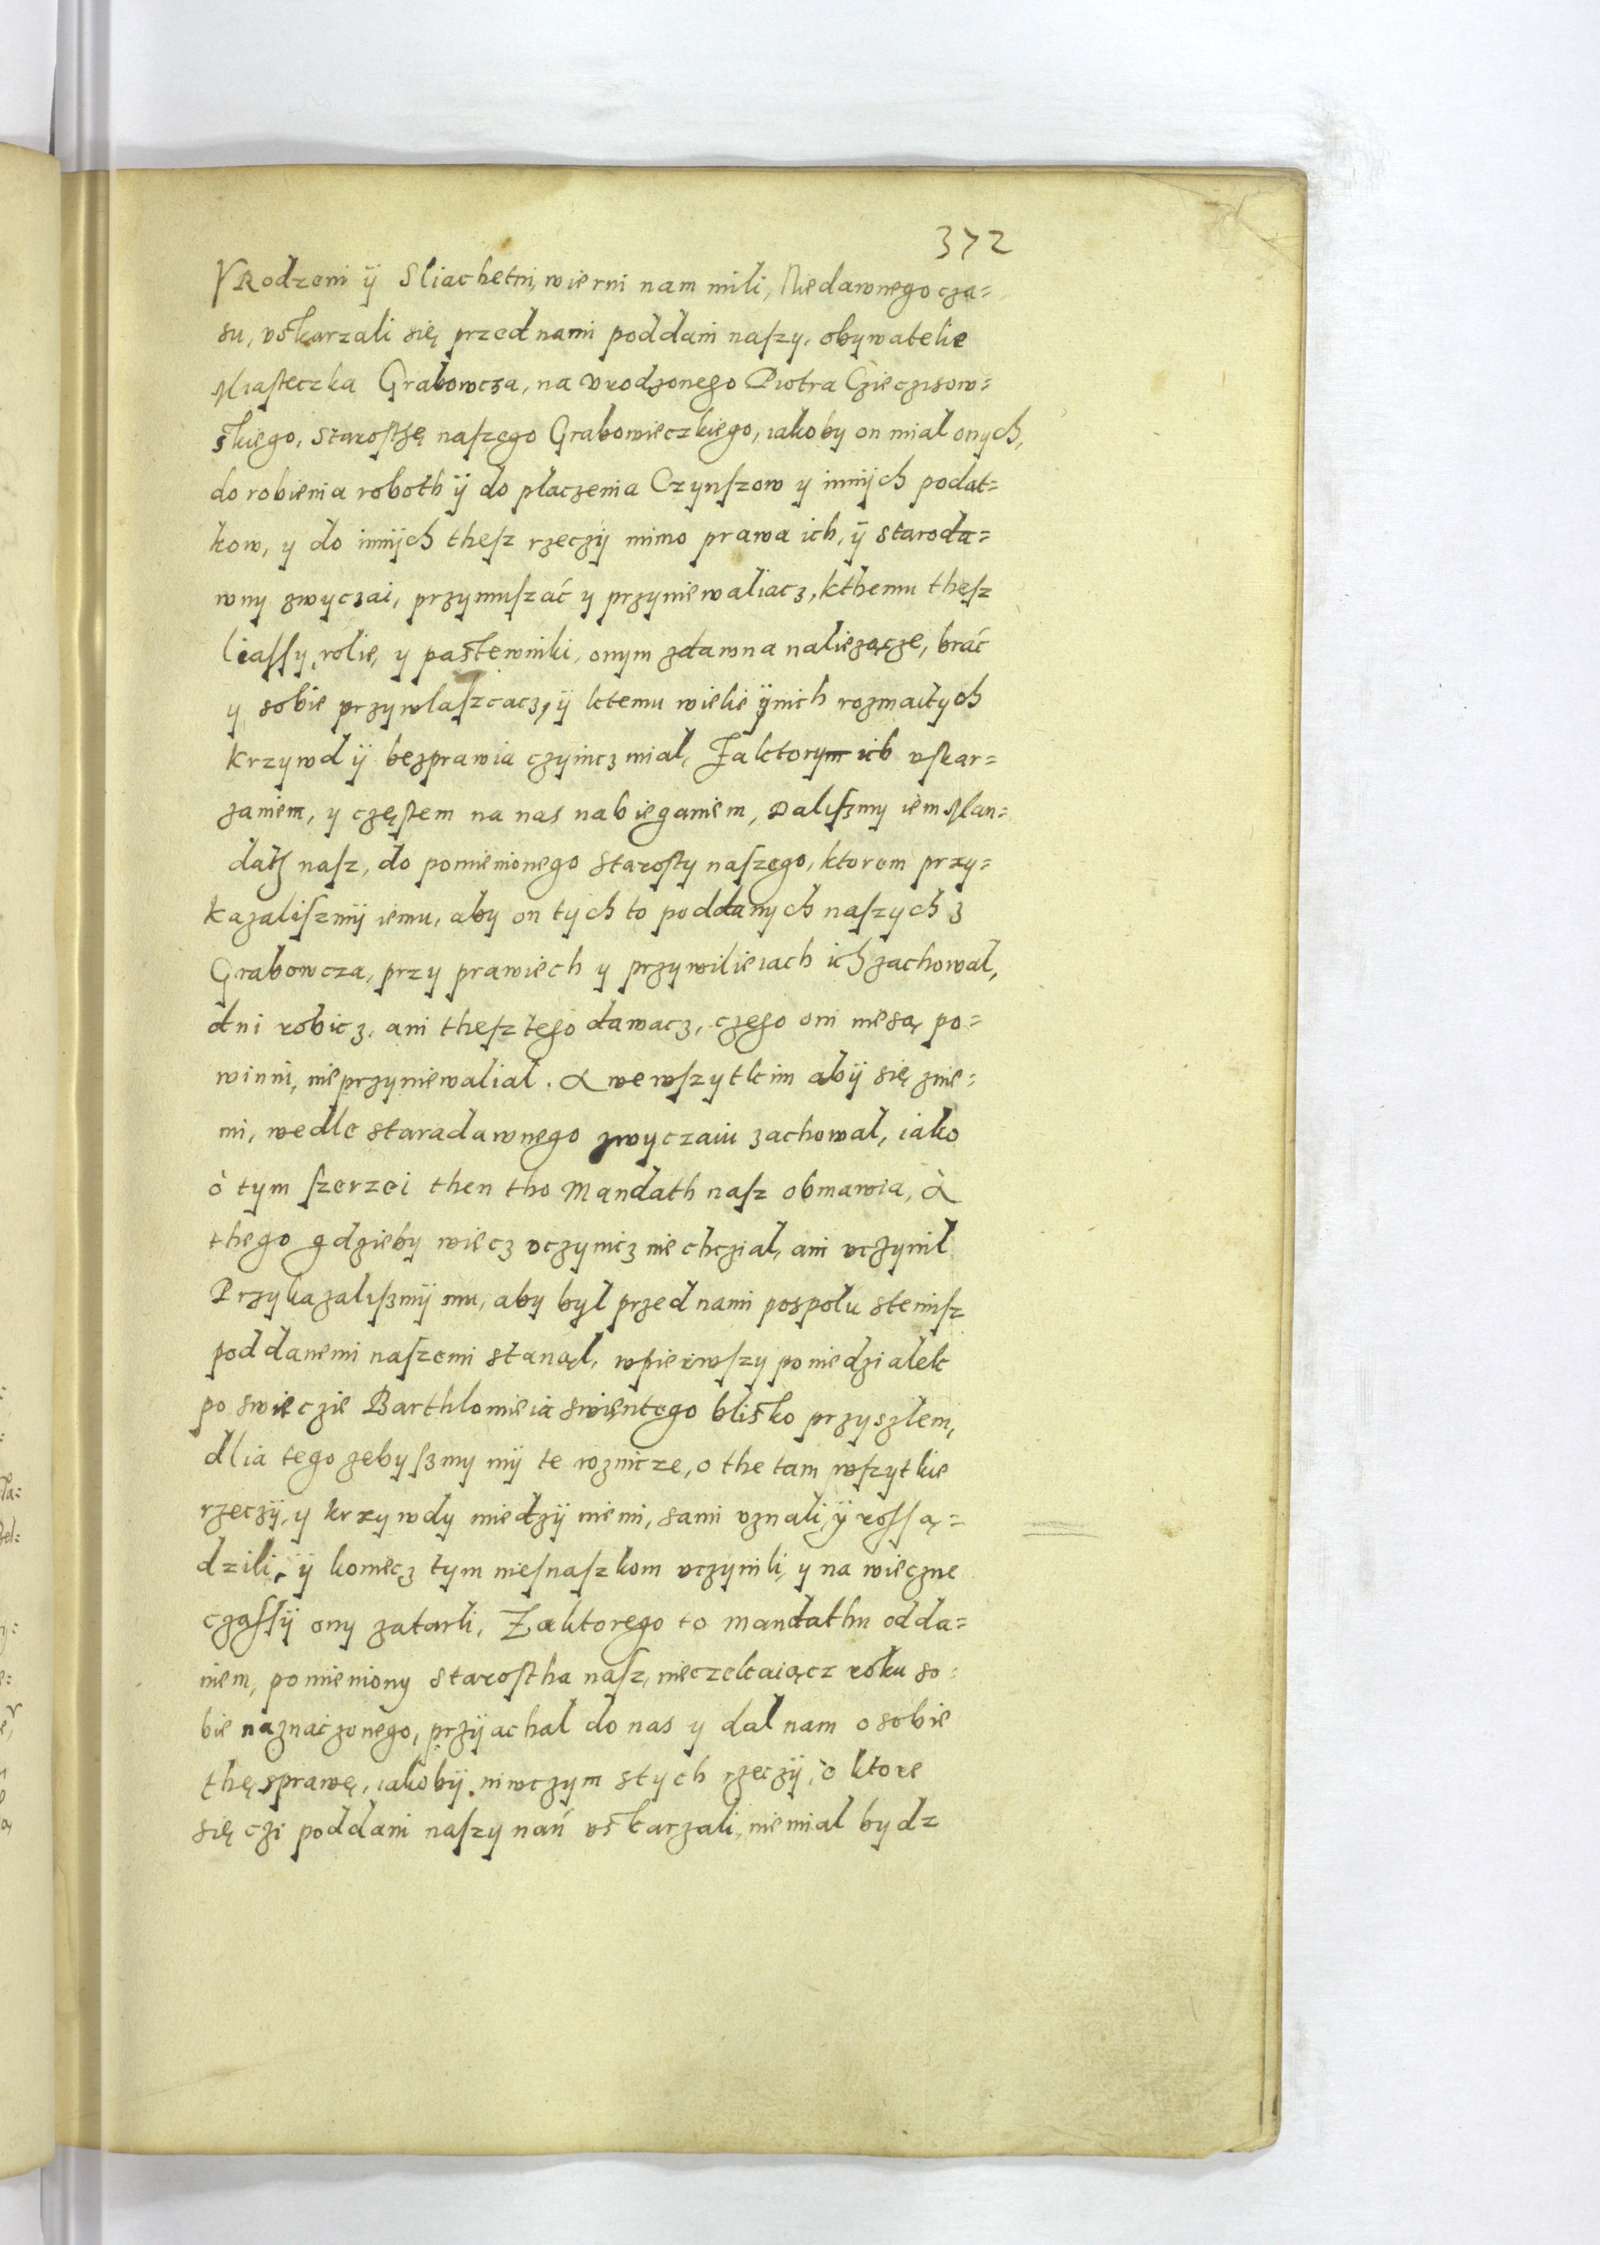 372
VRodzeni ÿ Sliachetni, wierni nam mili, Niedawnego cza=
su, vskarzali się przed nami poddani naszy, obywatelie
Miasteczka Grabowcza, na vrodzonego Piotra Czieczisow=
skiego, Starosthę naszego Grabowieczkiego, iakoby on mial onych,
do robienia roboth ÿ do placzenia Czynszow y innÿch podat=
kow, y do innÿch thesz rzeczÿ mimo prawa ich, ÿ staroda=
wny zwyczai, przymuszać y przyniewaliacz, kthemu thesz
liassy, rolie, y pastewniki, onym zdawna naliezącze, brać
y sobie przywlaszcacz, ÿ ktemu wielie ÿnich rozmaitych
krzywd ÿ bezprawia czyincz mial, Za ktorym ich vskar=
zaniem, y częstem na nas nabieganiem, Daliszmy iem Man=
dath nasz, do pomienionego Starosty naszego, ktorem przy=
kazaliszmÿ iemu, aby on tych to poddanych naszych z
Grabowcza, przy prawiech y przywilieiach ich zachowal,
dni robicz, ani thesz tego dawacz, czego oni niesą po=
winni, nieprzyniewalial. A we wszytkim abÿ się znie=
mi, wedle staradawnego zwyczaiu zachowal, iako
ò tym szerzei then tho Mandath nasz obmawia, à
thego gdzieby wiecz vczynicz niechczial, ani vczynil
Przykazaliszmÿ mu, aby byl przed nami pospolu stemisz
poddanemi naszemi stanąl, wpierwszy poniedzialek
po swieczie Barthlomieia swiętego blisko przyszlem,
dlia tego zebyszmy mÿ te roznicze, o the tam wszytkie
rzeczÿ, y krzywdy miedzÿ niemi, sami vznali, ÿ rossą=
dzili, ÿ koniecz tym niesnaszkom vczynili, y na wieczne
czassÿ ony zatarli, Za ktorego to mandathu odda=
niem, pomieniony Starostha nasz, nieczekaiącz roku so=
bie naznaczonego, przÿachal do nas y dal nam o sobie
thę sprawę, iakobÿ niwczym stych rzeczÿ, o ktore
się czi poddani naszy nań vskarzali, niemial bydz